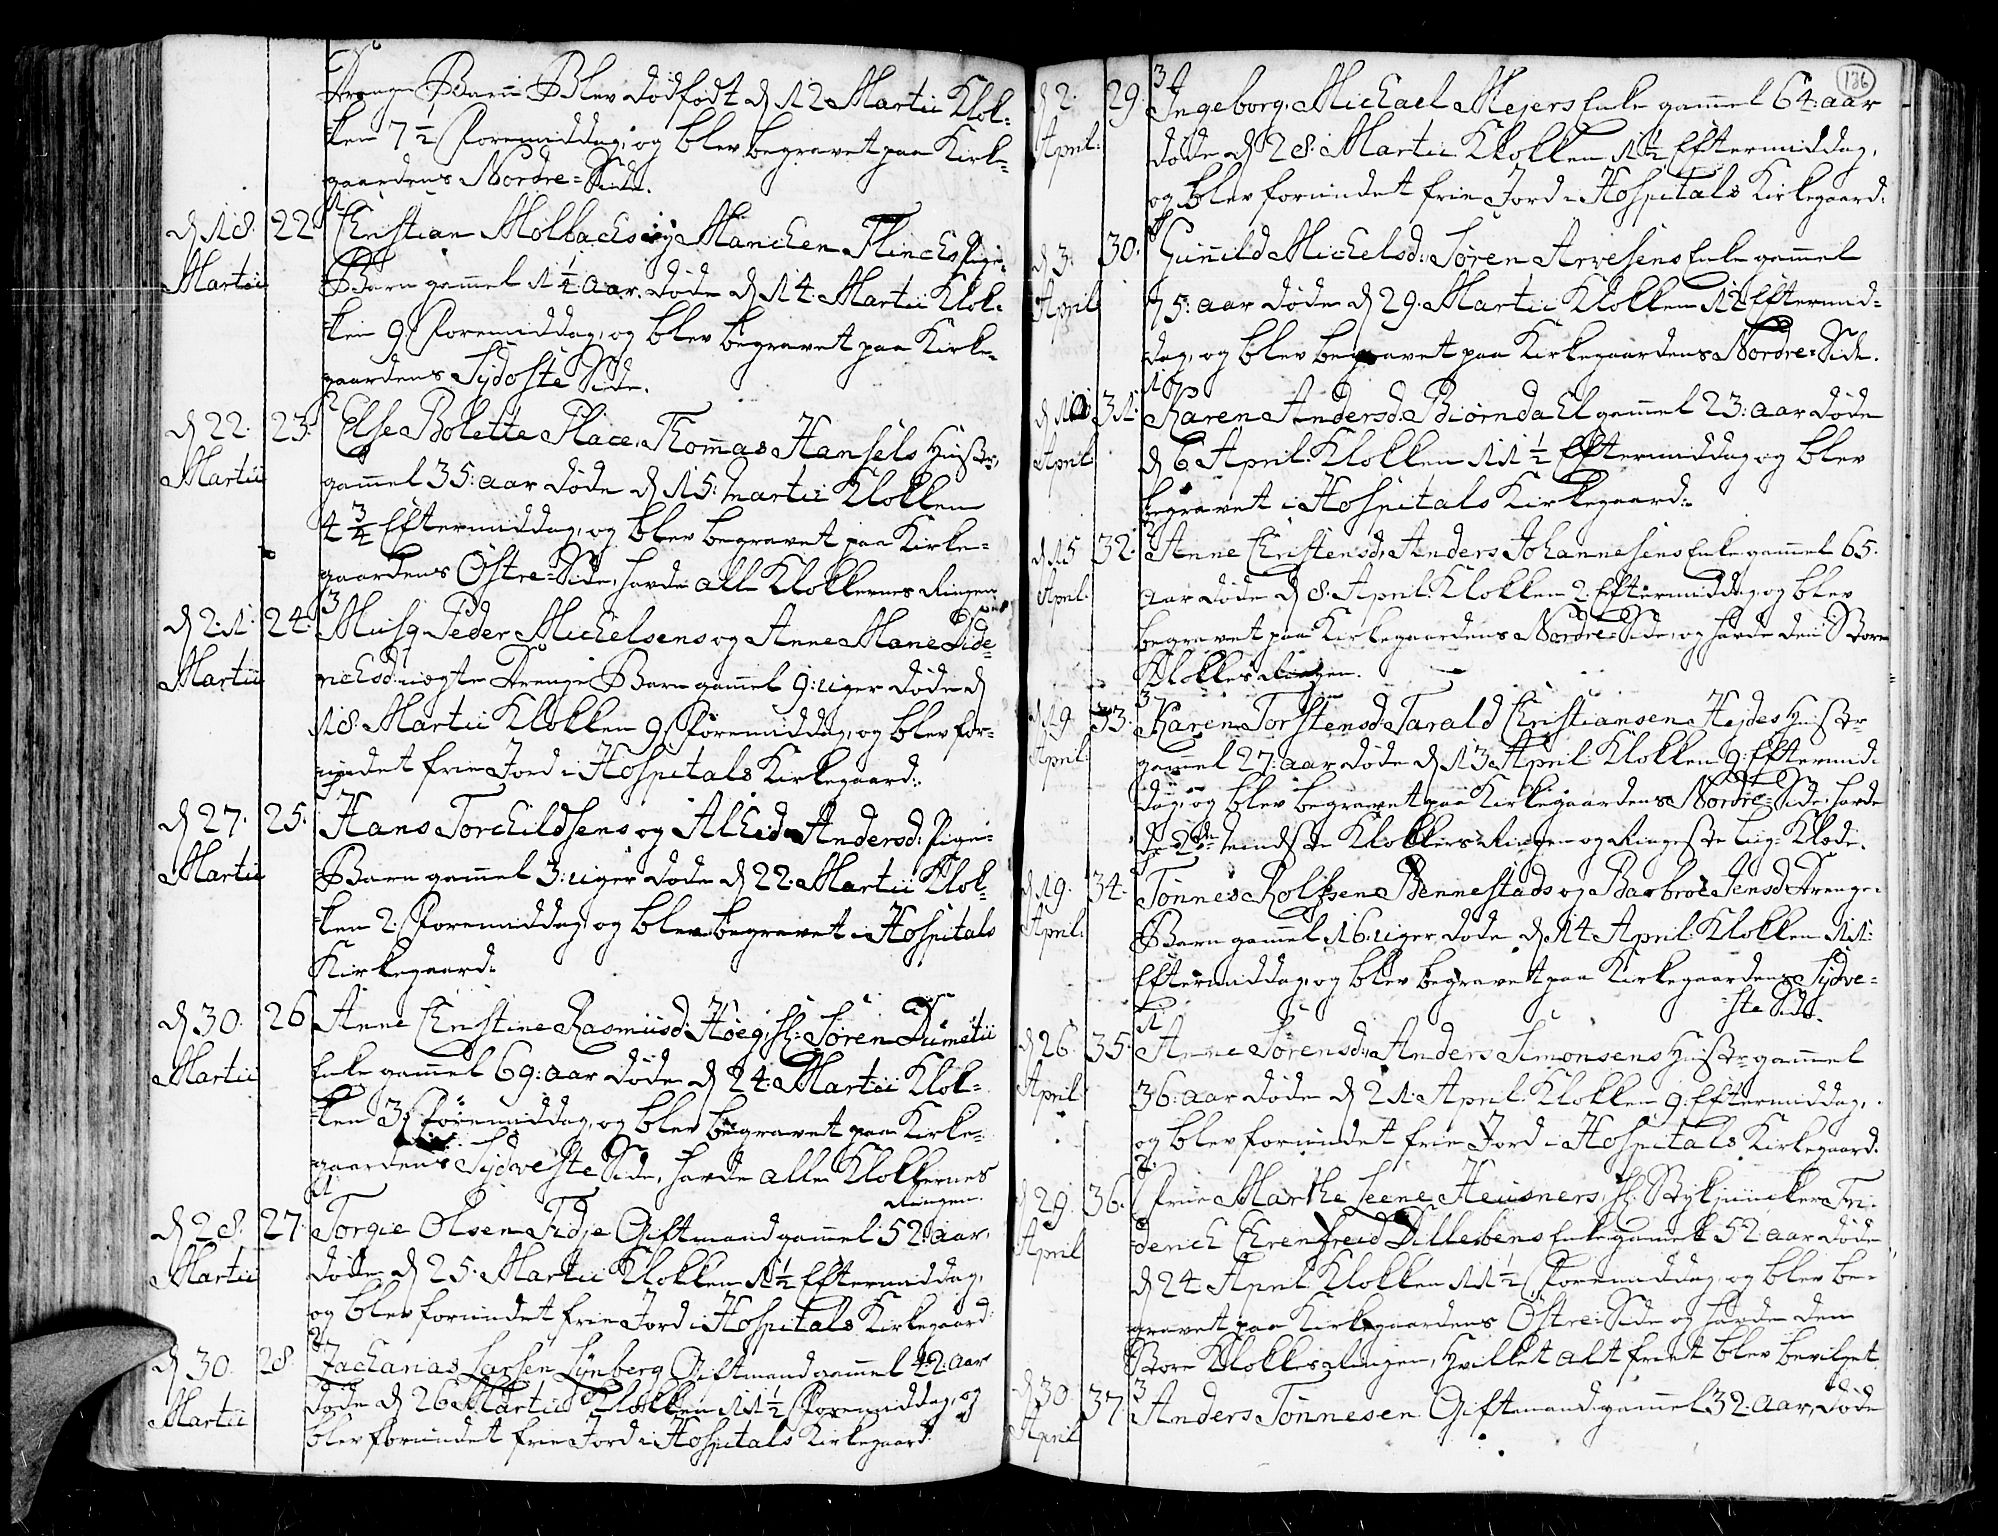 Drenge Barn Blev dödfödt d 12 Martii Klok-
ken 7 1/2 Foremiddag, og blev begravet paa Kirke-
gaardens Nordre-Side.
d 18. Martii 22 Christian Molbachs og Manichen Flinchs Pige-
Barn gammel 1 1/4 aar, döde d 14 Martii Klok-
ken 9 Foremiddag, og blev begravet paa Kirke-
gaardens Sydoste Side.
d 22. Martii 23. Else Bolette Place, Thommas Hansels Hustr,
gammel 35: aar döde d 15: Martii Klokken
4 3/4 Eftermiddag, og blev begravet paa Kirke-
gaardens Östre-Side, havde alle Klokkernes Ringen
d 21. Martii 24. 3 Musq Peder Michelsens og Anne Marie Dide-
richsd: uægte Drenge Barn gammel 9: uger döde d
18. Martii Klokken 9 Foremiddag, og blev for-
undet frie Jord i Hospitals Kirkegaard:
d 27. Martii 25. Hans Torchildsens og Alhed Andersd: Pige-
Barn gammel 3: uger döde d 22. Martii Klok-
ken 2. Foremiddag, og blev begravet i Hospitals
Kirkegaard:
d 30. Martii 26 Anne Christine Rasmusd: Höeg, sl: Sören Dumetii
Enke gammel 69: aar döde d 24: Martii Klok-
ken 3 Foremiddag, og blev begravet paa Kirke-
gaardens Sydveste Side, havde alle Klokkernes
Ringen.
d 28. Martii 27. Torgie Olsen Fidje Giftmand gammel 52: aar,
döde d 25. Martii Klokken 1 1/2 Eftermiddag,
og blev forundet frie Jord i Hospitals Kirkegaard:
d 30. Martii 28. Zacharias Larsen Lynberg Giftmand gammel 42: aar
döde d 26 Martii Klokken 11 1/2 Foremiddag, og
blev forundet frie Jord i Hospitals Kirkegaard:
136
d 2. April. 29. 3 Ingeborg, Michael Mejers Enke gammel 64: aar
döde d 28. Martii Klokken 1 1/2 Eftermiddag,
og blev forundet frie Jord i Hospitals Kirkegaard:
d 3. April 30. Gunnild Michelsd: Sören Arvesens Enke gammel
75: aar döde d 29. Martii Klokken 12 Eftermid-
dag, og blev begravet paa Kirkegaardens Nordre-Side.
d 10 April 31. Karen Andersd: Biörndahl gammel 23: aar döde
d 6 April. Klokken 11 1/2 Eftermiddag og blev
begravet i Hospitals Kirkegaard:
d 15 April. 32. Anne Christensd, Anders Johannesens Enke gammel 65.
aar döde d 8. April Klokken 2. Eftermiddag og blev
begravet paa Kirkegaardens Nordre-Side, og havde den Store
Klokkes Ringen.
d 19. April. 33. 3 Karen Torstensd: Tarald Christiansen Hejdes Hustr
gammel 27: aar döde d 13. April Klokken 9: Eftermid-
dag, og blev begravet paa Kirkegaardens Nordre-Side, havde
de 2de mindste Klokkers Ringen og Ringeste Liig-Klæde.
d 19. April. 34. Tönnes Rolfsen Bennestads og Barbroe Jensd Drenge-
Barn gammel 16. uger, döde d 14 April. Klokken 11:
Eftermiddag, og blev begravet paa Kirkegaardens Sydve-
ste Side.
d 26. April. 35. Anne Sörensd, Anders Simonsens Hustr gammel
36: aar döde d 21. April. Klokken 9. Eftermiddag,
og blev forundet frie Jord i Hospitals Kirkegaard.
d 29. April 36. 2. Frue Marthe Leene Heusners, sl: Stykjuncker Fri-
derich Ehrenfreid Dillebens Enke gammel 52 aar döde
d 24. April. Klokken 11 1/2 Foremiddag, og blev be-
gravet paa Kirkegaardens Östre-Side og havde den
Store Klokkes Ringen, hvilket alt friet blev bevilget
d 30. April 37 3 Anders Tönnesen Giftmand gammel 32. aar, döde